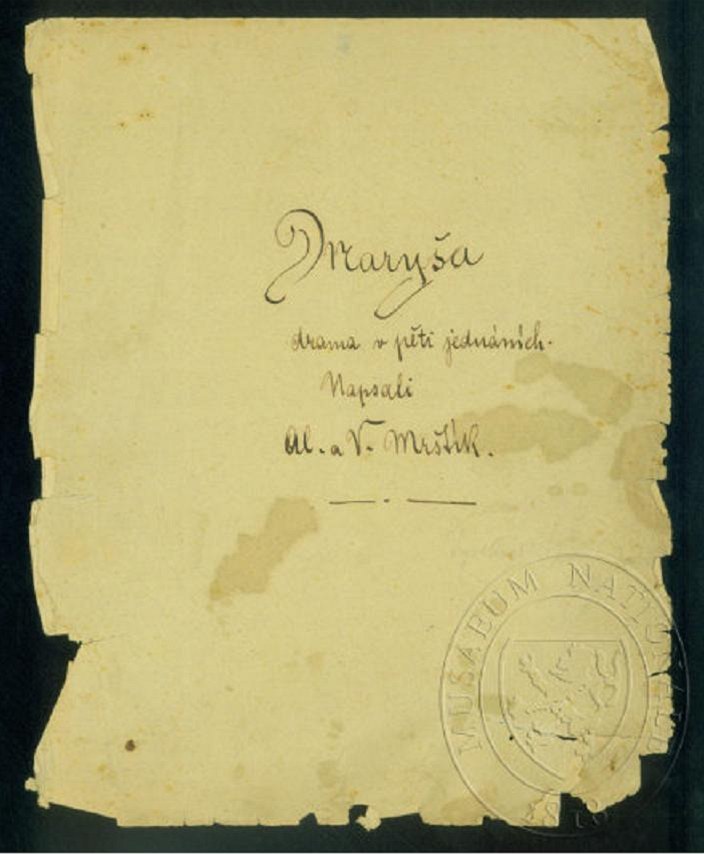 Maryša
drama v pěti jednáních.
Napsali
Al. a V. Mrštík.
MUSAEUM NATIONALE
1818